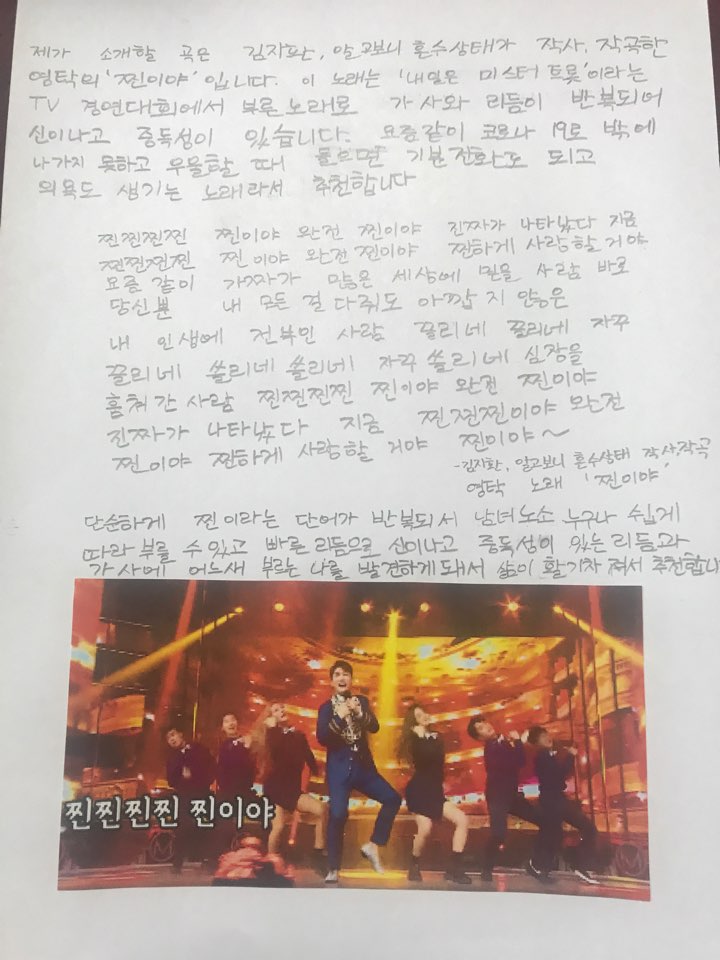 제가 소개할 곡은 김지환, 알고보니 혼수상태가 작사, 작곡한
영탁의 '찐이야' 입니다. 이 노래는 '내일은 미스터 트롯'이라는
TV 경연대회에서 부른 노래로 가사와 리듬이 반복되어
신이나고 중독성이 있습니다. 요즘같이 코로나 19로 밖에
나가지 못하고 우울할 때 들으면 기분전환도 되고
의욕도 생기는 노래라서 추천합니다
찐찐찐찐 찐이야 완전 찐이야 진짜가 나타났다 지금
찐찐찐찐 찐이야 완전 찐이야 찐하게 사랑할 거야
요즘 같이 가짜가 많은 세상에 믿을 사람 바로
당신뿐 내 모든 걸 다줘도 아깝지 않은
내 인생에 전부인 사람 끌리네 끌리네 자꾸
끌리네 쏠리네 쏠리네! 자꾸 쏠리네 심장을
훔쳐간 사람 찐찐찐찐 찐이야 완전 찐이야
진짜가 나타났다 지금 찐찐찐이야 완전
찐이야 찐하게 사랑할 거야 찐이야~
-김지환, 알고보니 혼수상태 작사,작곡
영탁 노래 '찐이야'
단순하게 찐이라는 단어가 반복되서 남녀노소 누구나 쉽게
따라 부를 수 있고 빠른 리듬으로 신이나고 중독성이 있는 리듬과
가사에 어느새 부르는 나를 발견하게 돼서 삶이 활기차 져서 추천합니
찐찐찐찐 찐이야